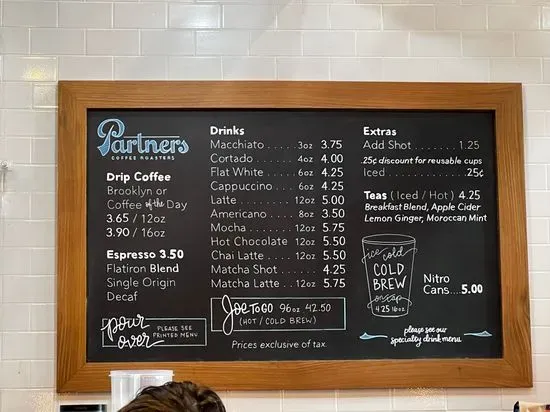 Partners
COFFEE ROASTERS
Drip Coffee
Brooklyn or
Coffee of the Day
3.65 / 12oz
3.90 / 16oz
Espresso 3.50
Flatiron Blend
Single Origin
Decaf
pour over
PLEASE SEE
PRINTED MENU
Drinks
Macchiato . . . . . 3oz 3.75
Cortado . . . . . . . 4oz 4.00
Flat White . . . . . 6oz 4.25
Cappuccino . . . . 6oz 4.25
Latte . . . . . . . . . 12oz 5.00
Americano . . . . . 8oz 3.50
Mocha . . . . . . . . 12oz 5.75
Hot Chocolate . . 12oz 5.50
Chai Latte . . . . . 12oz 5.50
Matcha Shot . . . . . . . 4.25
Matcha Latte . . . 12oz 5.75
Joe TO GO 96oz 42.50
(HOT / COLD BREW)
Prices exclusive of tax.
Extras
Add Shot . . . . . . . 1.25
.25¢ discount for reusable cups
Iced . . . . . . . . . . . . .25¢
Teas ( Iced / Hot ) 4.25
Breakfast Blend, Apple Cider
Lemon Ginger, Moroccan Mint
ice cold
COLD
BREW
on tap
4.25 16oz
Nitro
Cans....5.00
please see our
specialty drink menu